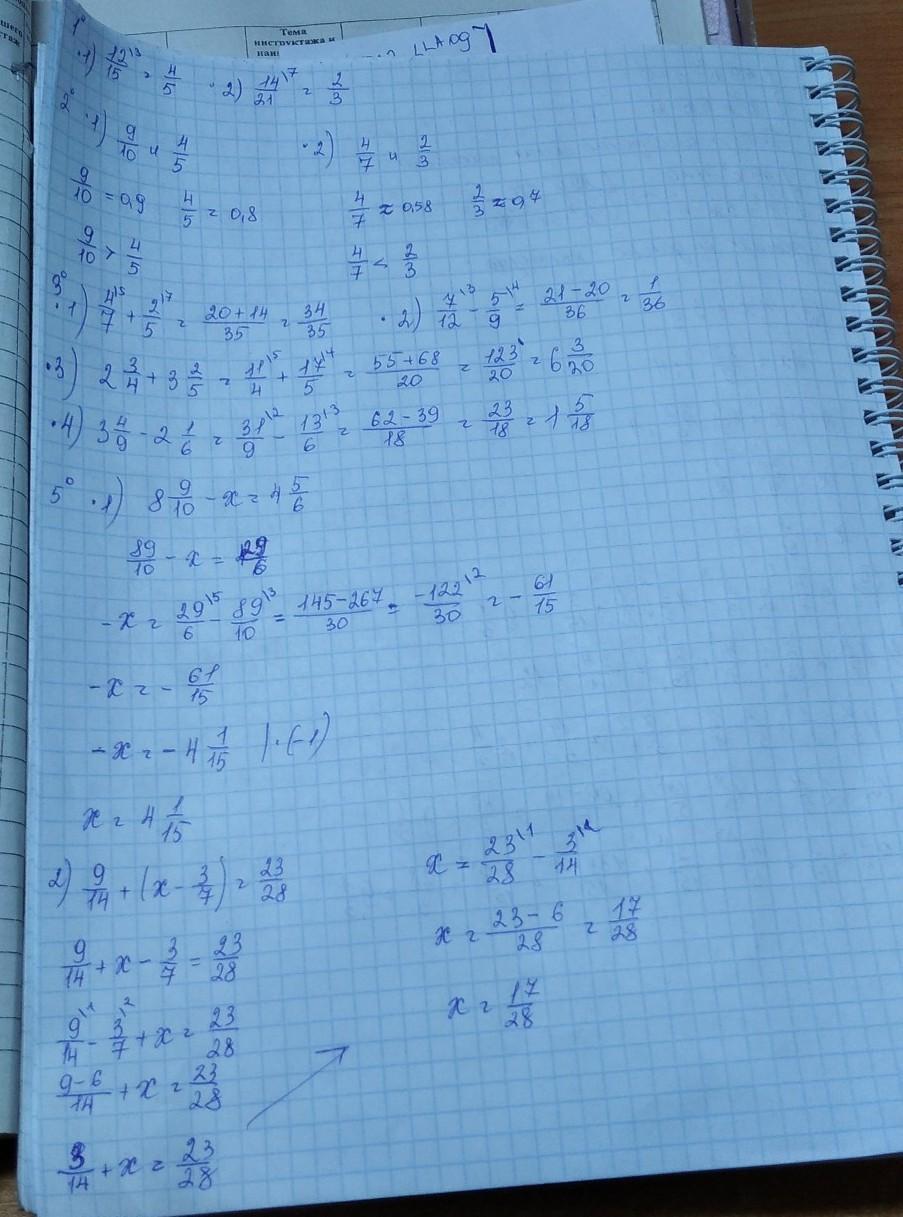 Тема
инструктажа и
1°
1) 12/15 \3 = 4/5   2) 14/21 \7 = 2/3
2°
1) 9/10 и 4/5   2) 4/7 и 2/3
9/10 = 0,9   4/5 = 0,8   4/7 ≈ 0,58   2/3 ≈ 0,7
9/10 > 4/5   4/7 < 2/3
3°
1) 4/7 \5 + 2/5 \7 = (20+14)/35 = 34/35   2) 7/12 \3 - 5/9 \4 = (21-20)/36 = 1/36
3) 2 3/4 + 3 2/5 = 11/4 \5 + 17/5 \4 = (55+68)/20 = 123/20 = 6 3/20
4) 3 4/9 - 2 1/6 = 31/9 \2 - 13/6 \3 = (62-39)/18 = 23/18 = 1 5/18
5° 1) 8 9/10 - x = 4 5/6
89/10 - x = 29/6
-x = 29/6 \5 - 89/10 \3 = (145-267)/30 = -122/30 \2 = -61/15
-x = -61/15
-x = -4 1/15 |·(-1)
x = 4 1/15
2) 9/14 + (x - 3/7) = 23/28
9/14 + x - 3/7 = 23/28
9/14 \1 - 3/7 \2 + x = 23/28
(9-6)/14 + x = 23/28
3/14 + x = 23/28
x = 23/28 \1 - 3/14 \2
x = (23-6)/28 = 17/28
x = 17/28